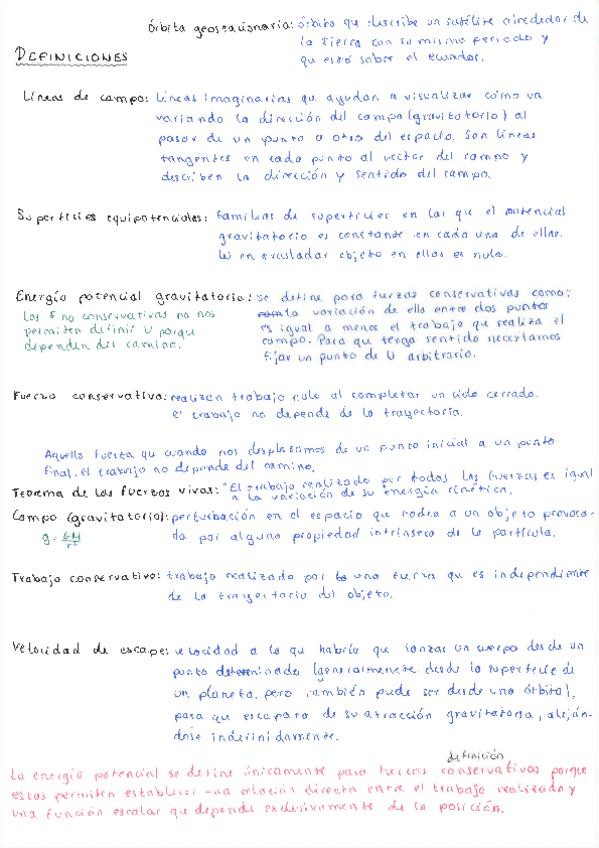 Órbita geoestacionaria: órbita que describe un satélite alrededor de
la Tierra con su mismo periodo y
que está sobre el ecuador.
DEFINICIONES
Líneas de campo: líneas imaginarias que ayudan a visualizar cómo va
variando la dirección del campo (gravitatorio) al
pasar de un punto a otro del espacio. Son líneas
tangentes en cada punto al vector del campo y
describen la dirección y sentido del campo.
Superficies equipotenciales: familias de superficies en las que el potencial
gravitatorio es constante en cada una de ellas.
objeto en ellas es nula.
Energía potencial gravitatoria: se define para fuerzas conservativas como:
la variación de ella entre dos puntos
es igual a menos el trabajo que realiza el
campo. Para que tenga sentido necesitamos
fijar un punto de U arbitrario.
Las F no conservativas no nos
permiten definir U porque
dependen del camino.
Fuerza conservativa: realizan trabajo nulo al completar un ciclo cerrado.
el trabajo no depende de la trayectoria.
Aquella fuerza que cuando nos desplazamos de un punto inicial a un punto
final, el trabajo no depende del camino.
Teorema de las fuerzas vivas: "El trabajo realizado por todas las fuerzas es igual
a la variación de su energía cinética.
Campo (gravitatorio): perturbación en el espacio que rodea a un objeto provoca-
da por alguna propiedad intrínseca de la partícula.
g = GM/r²
Trabajo conservativo: trabajo realizado por una fuerza que es independiente
de la trayectoria del objeto.
Velocidad de escape: velocidad a la que habría que lanzar un cuerpo desde un
punto determinado (generalmente desde la superficie de
un planeta, pero también puede ser desde una órbita),
para que escapara de su atracción gravitatoria, aleján-
dose indefinidamente.
definición
La energía potencial se define únicamente para fuerzas conservativas porque
estas permiten establecer una relación directa entre el trabajo realizado y
una función escalar que depende exclusivamente de la posición.